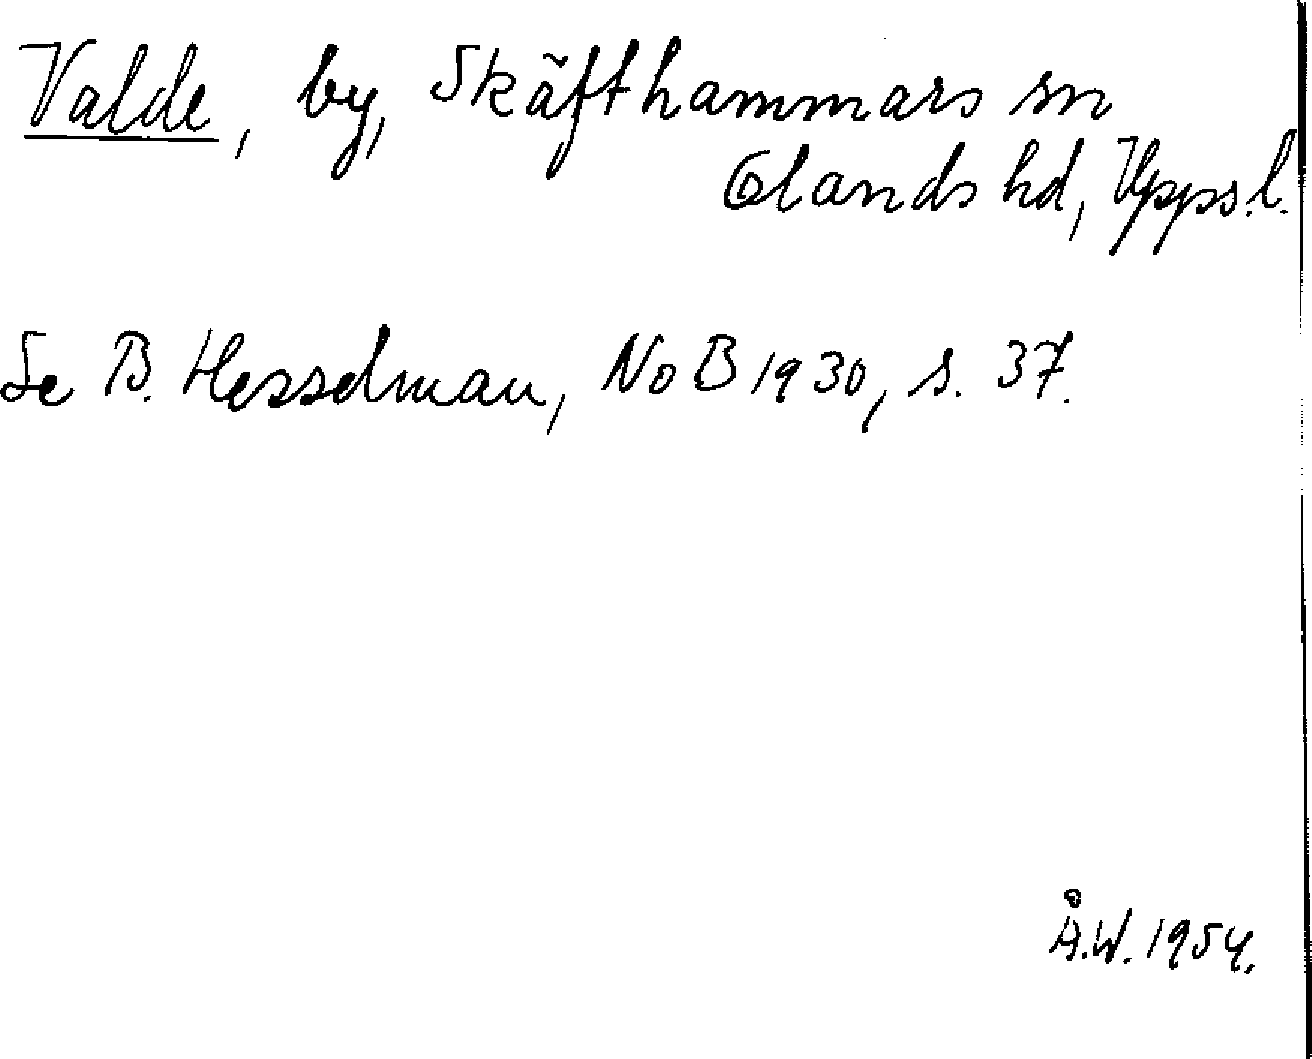 Valde, by, Skäfthammars sn
Olands hd, Upps.l.
Se B. Hesselman, NoB 1930, s. 37.
Å.W. 1954.